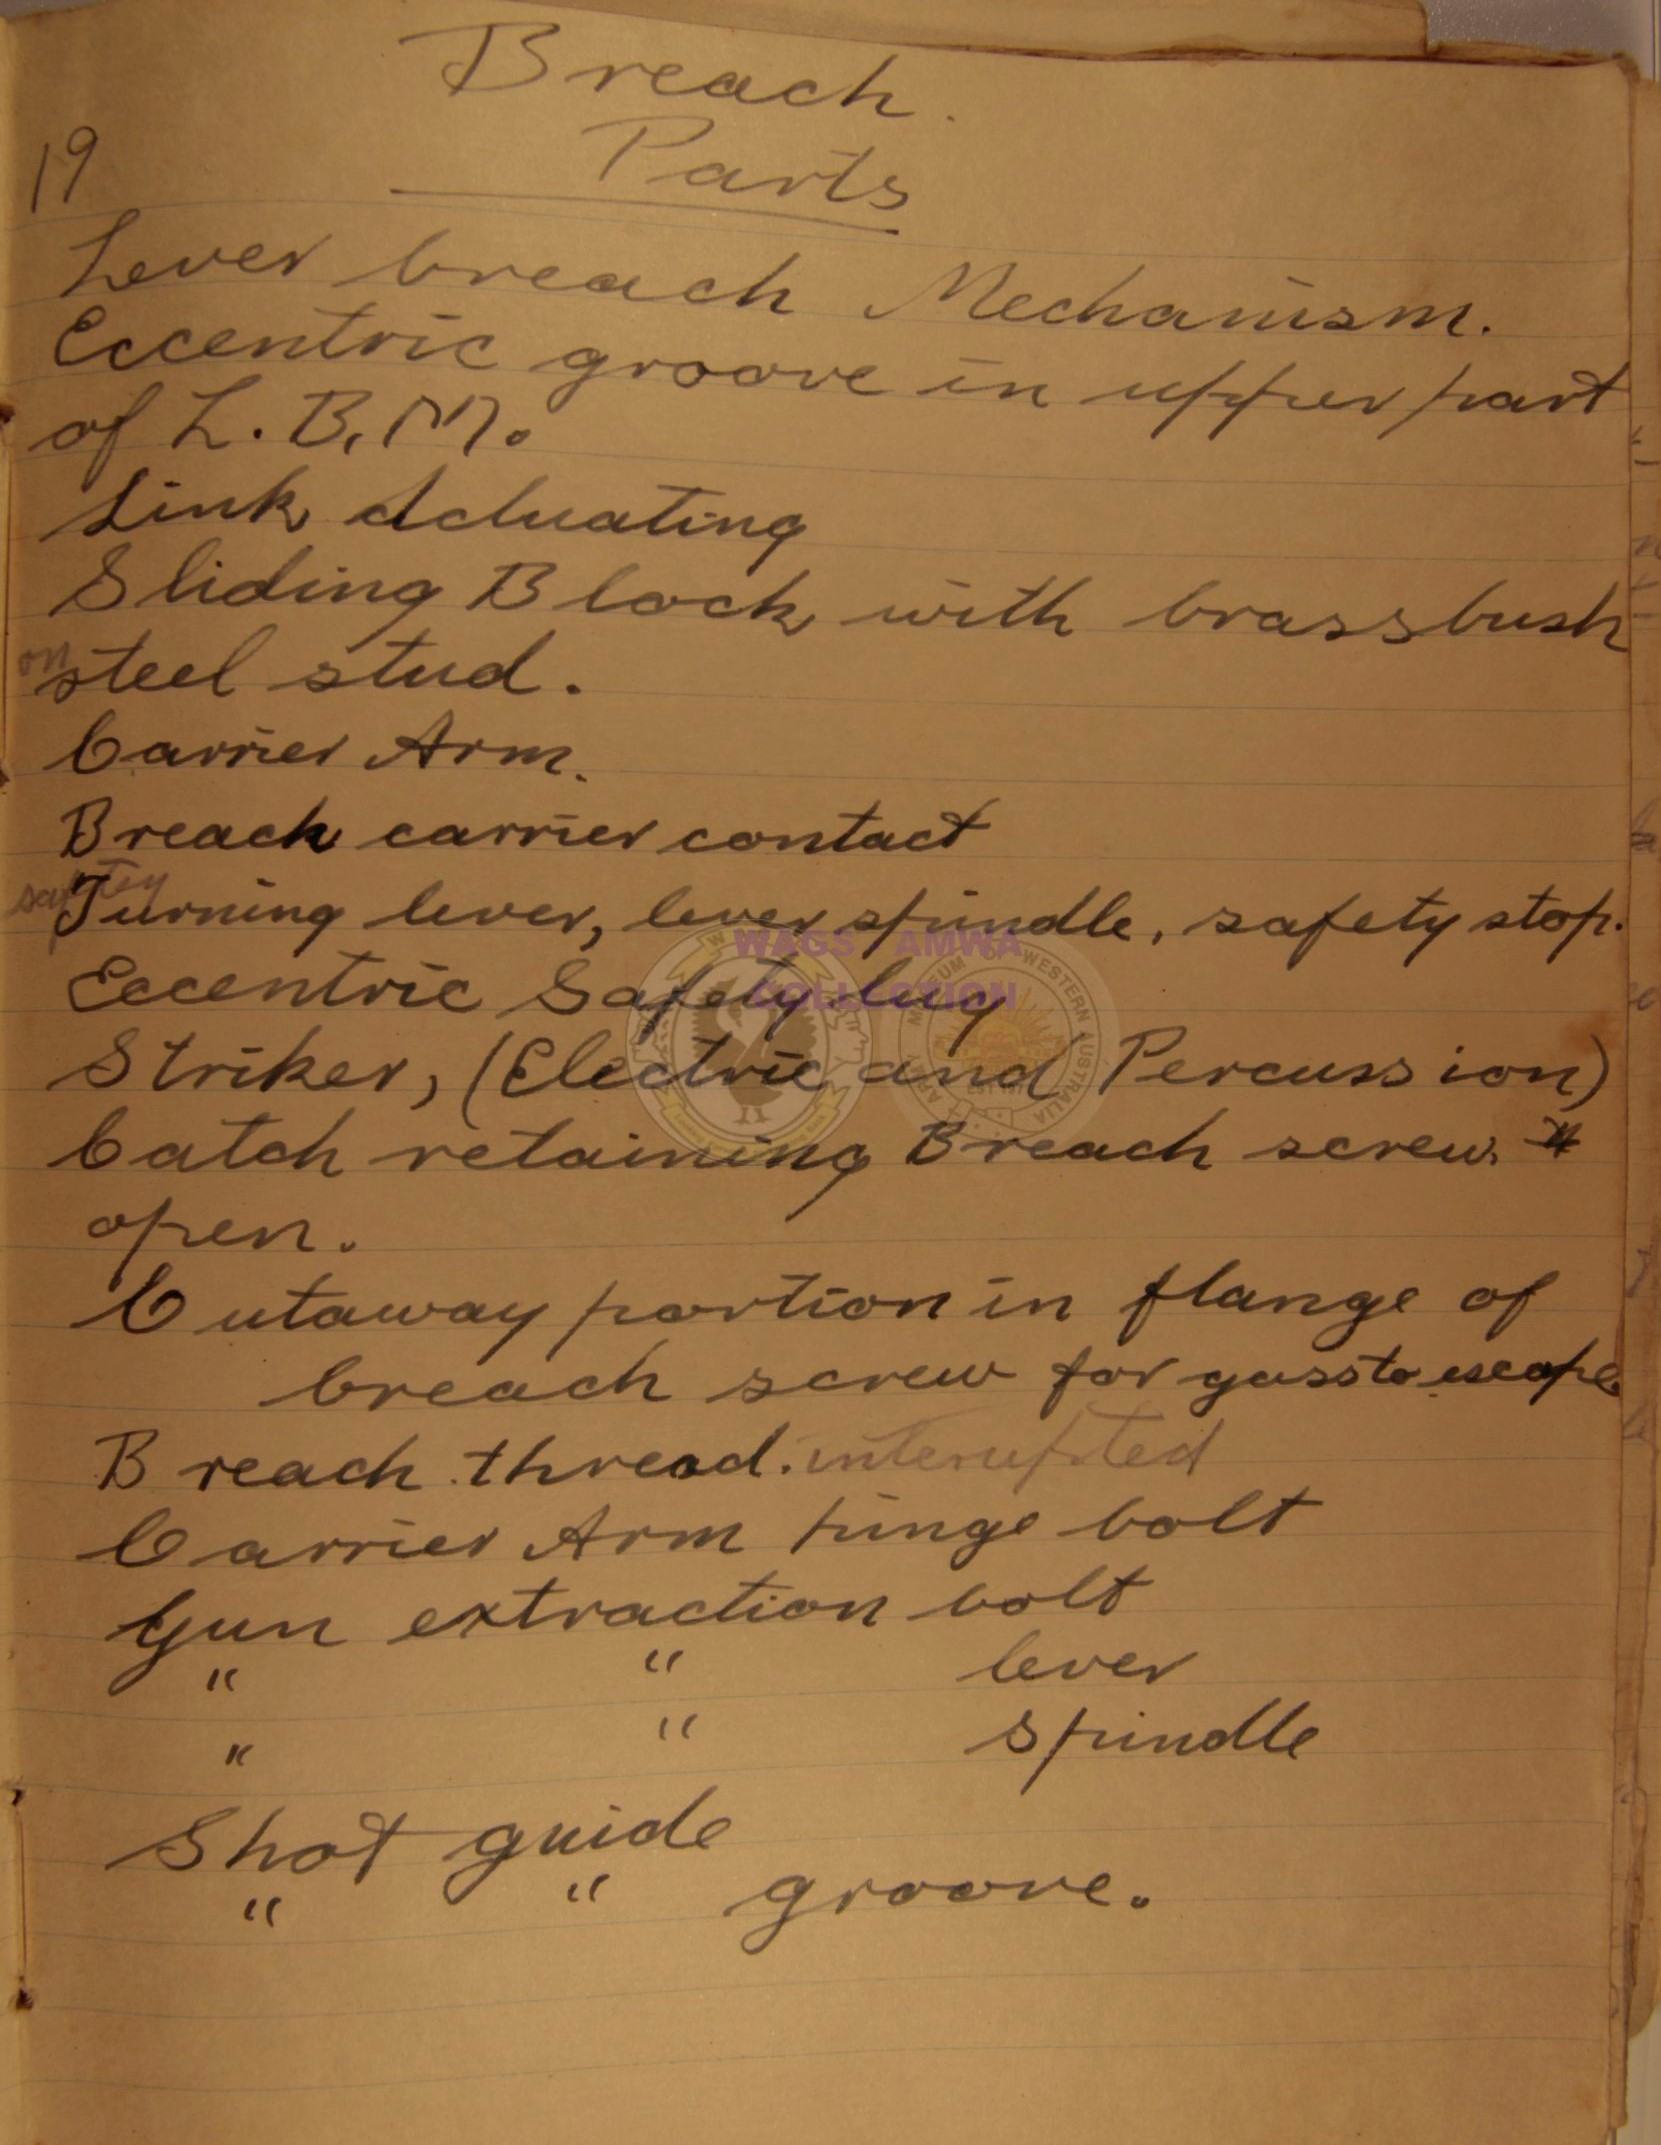 Breach.
19
Parts
Lever breach Mechanism.
Eccentric groove in upper part
of L. B. M.
Link Actuating
Sliding Block with brass bush
on steel stud.
Carrier Arm.
Breach carrier contact
safety
Turning lever, lever spindle, safety stop.
Eccentric Safety lug
Striker, (Electric and Percussion)
Catch retaining Breach screw
open.
Cutaway portion in flange of
breach screw for gass to escape
Breach thread. interupted
Carrier Arm hinge bolt
Gun extraction bolt
" " lever
" " spindle
Shot guide
" " groove.
WAGS AMWA
COLLECTION
MUSEUM OF WESTERN AUSTRALIA
ARMY